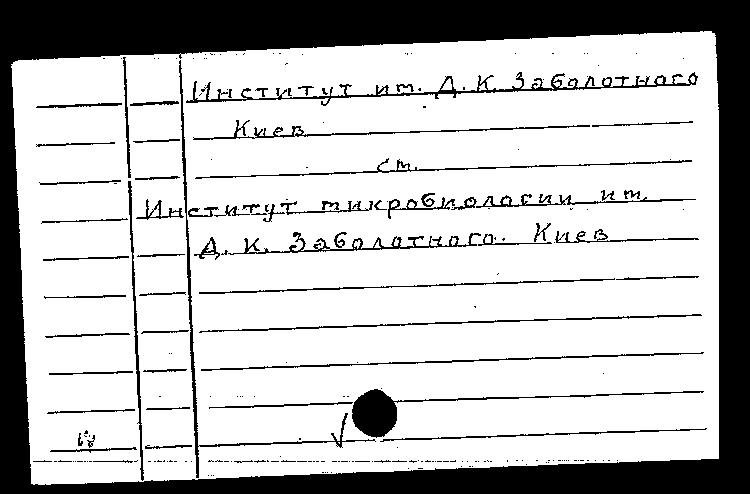 Институт им. Д. К. Заболотного
Киев
см.
Институт микробиологии им.
Д. К. Заболотного. Киев